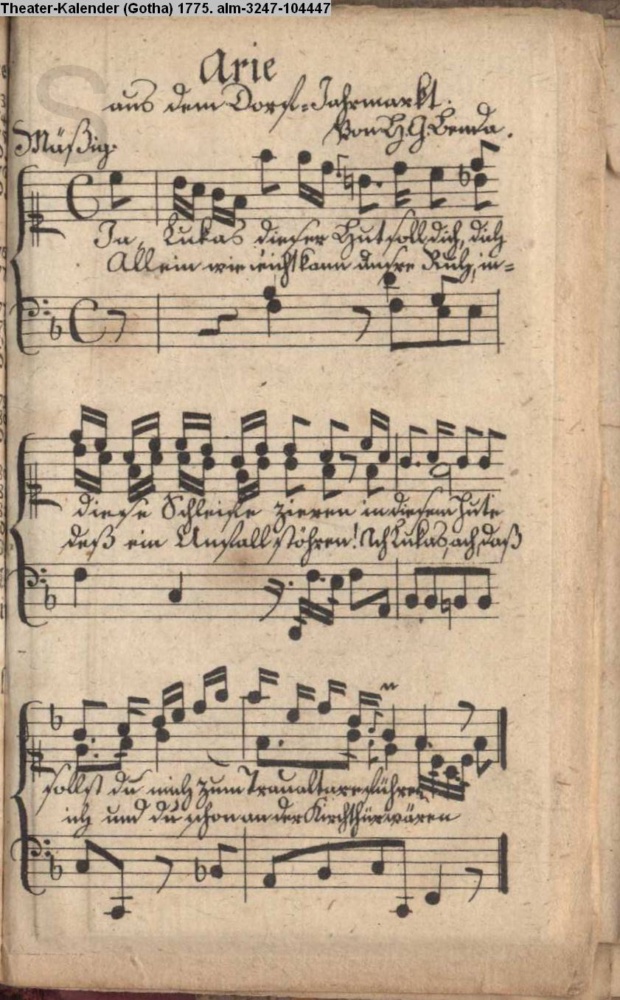 Theater-Kalender (Gotha) 1775. alm-3247-104447
Arie
aus dem Dorf-Jahrmarkt.
Von H. G. Benda.
Mäßig.
Ja, Lukas dieser Hut soll dich, dich
Allein wie leicht kann unsre Ruh, in-
diese Schleife zieren in diesem Hute
deß ein Unfall stöhren! Ach Lukas, ach, daß
sollst du mich zum Traualtare führen
ich und du schon an der Kirchthür wären